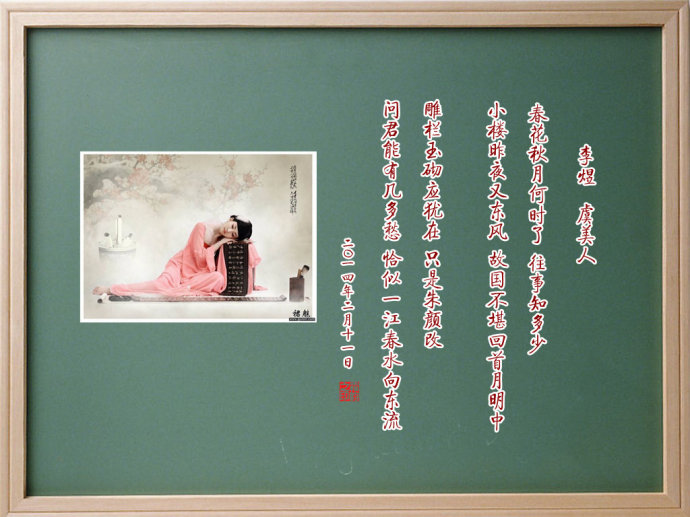 李煜 虞美人
春花秋月何时了 往事知多少
小楼昨夜又东风 故国不堪回首月明中
雕栏玉砌应犹在 只是朱颜改
问君能有几多愁 恰似一江春水向东流
二〇一四年二月十一日